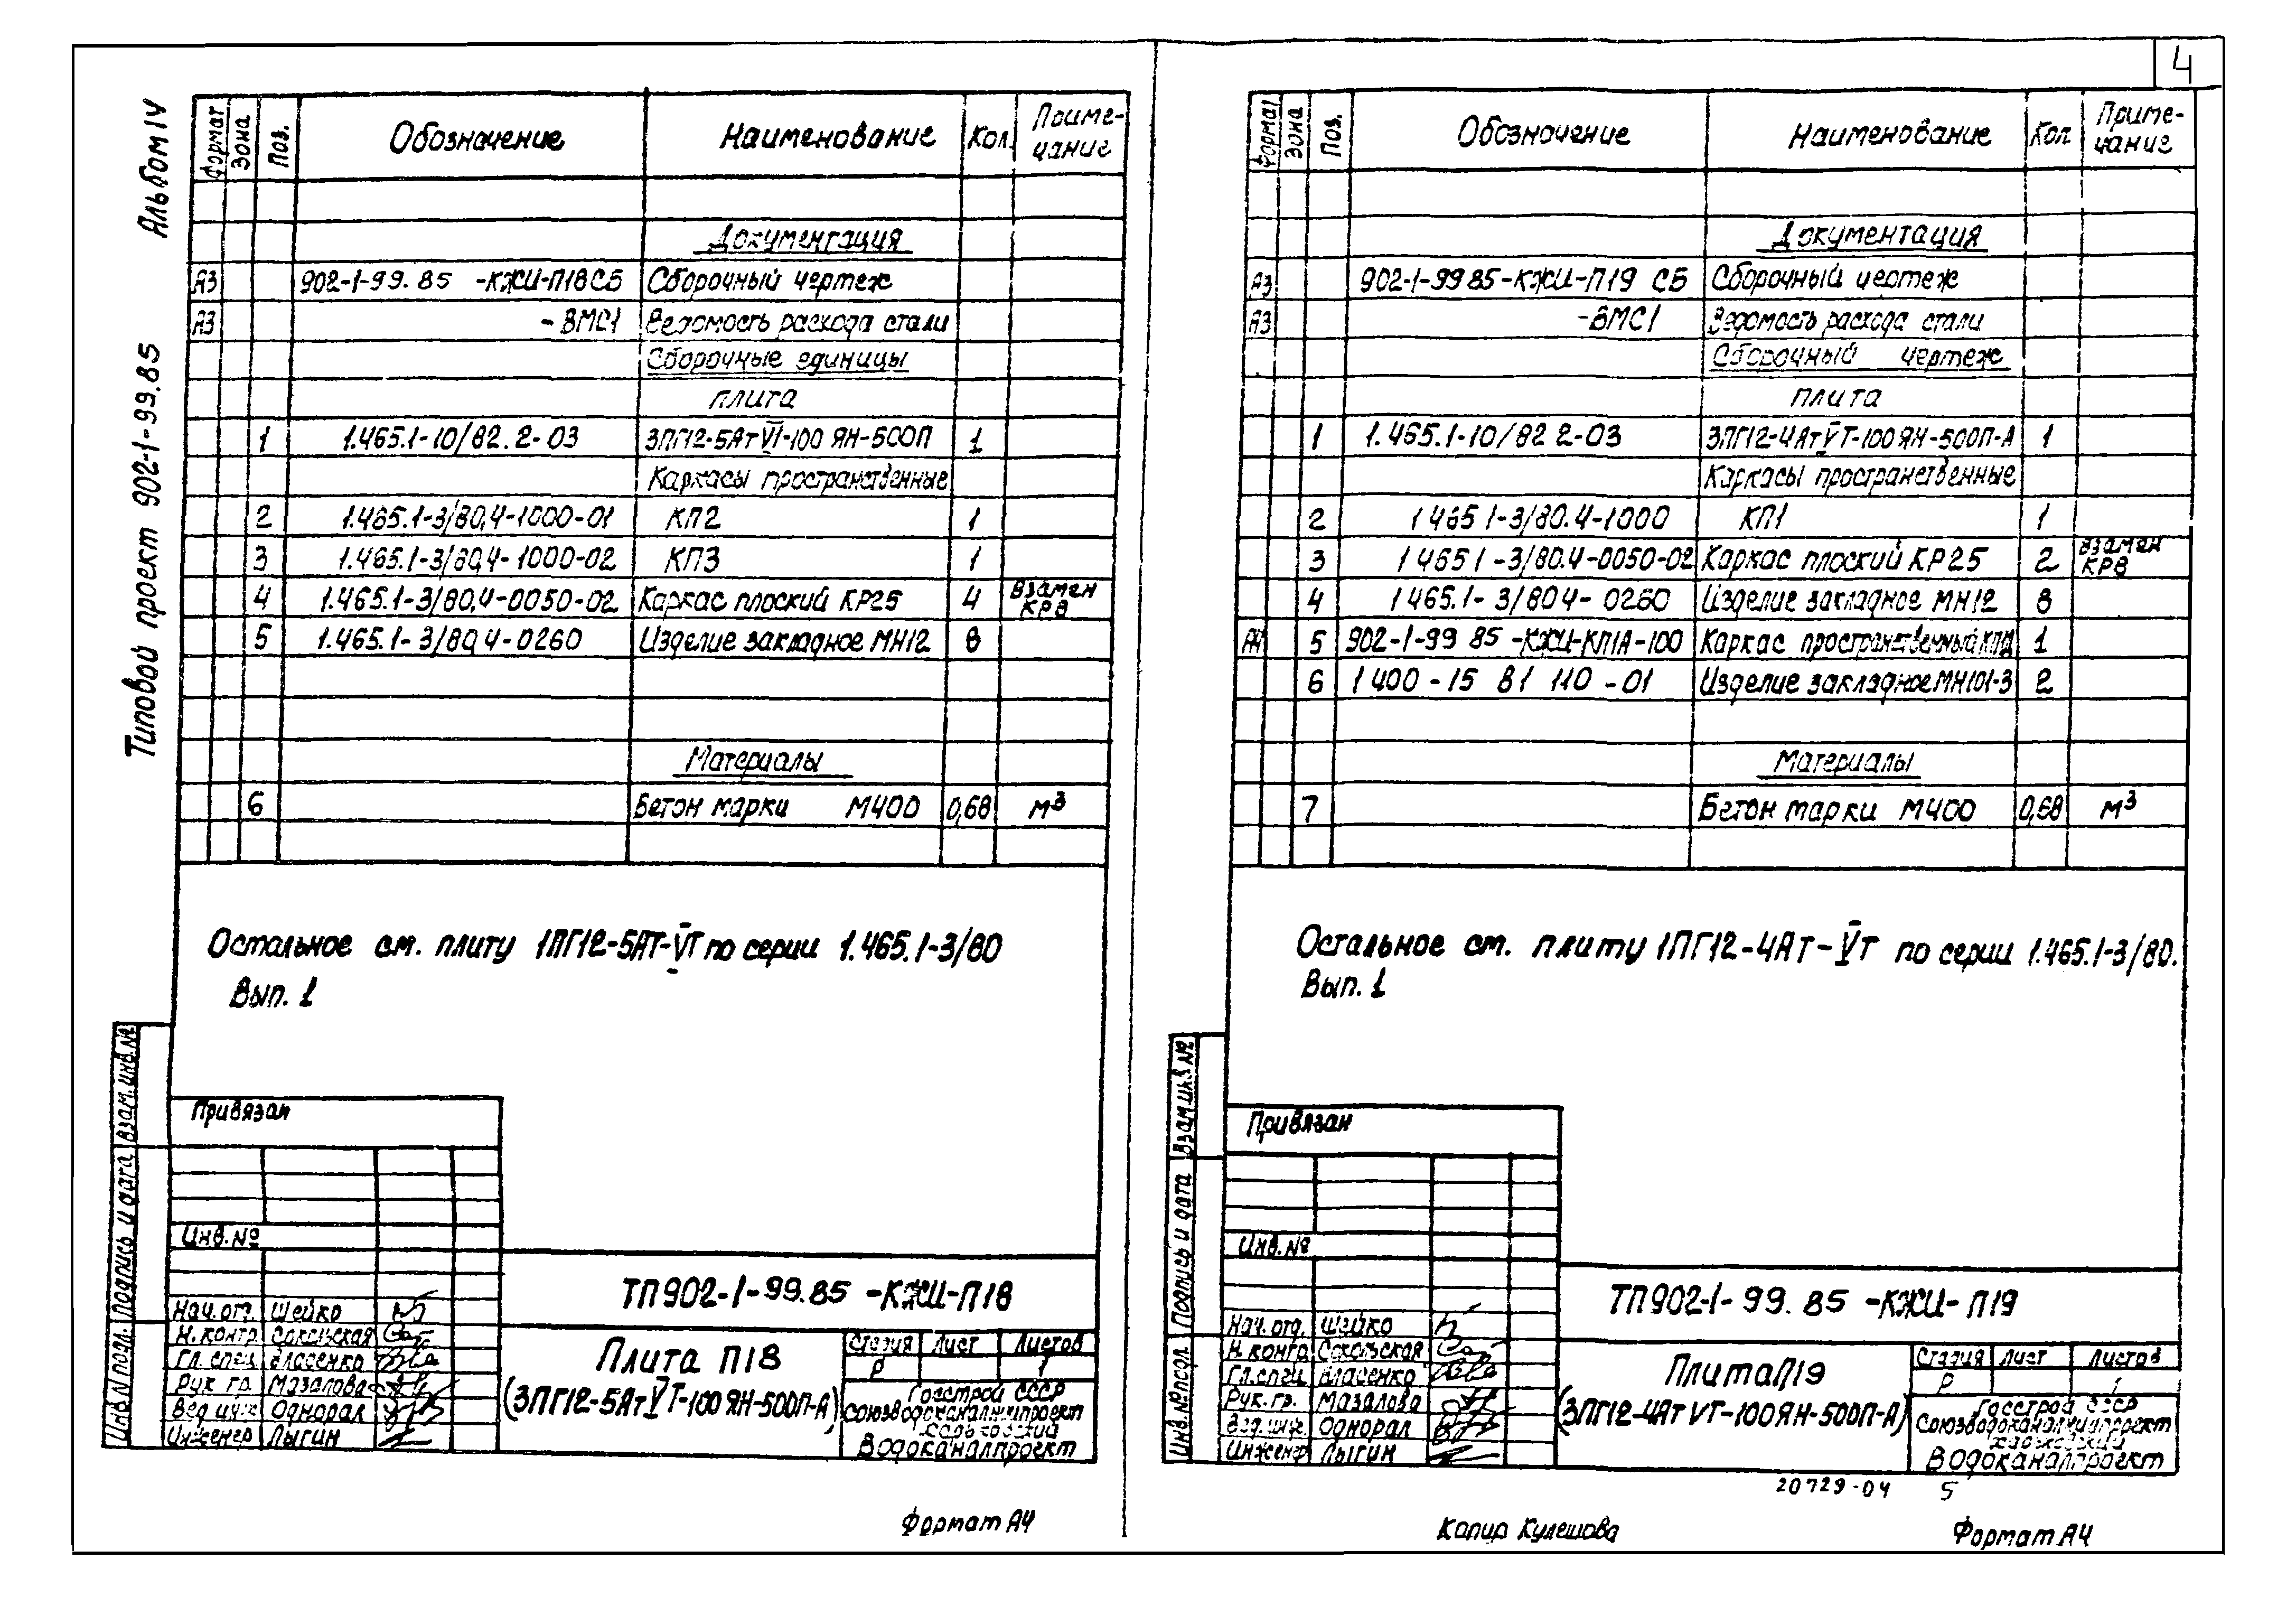 4
Альбом IV
Типовой проект 902-1-99.85
Формат Зона Поз. Обозначение Наименование Кол. Приме-
чание
Документация
А3 902-1-99.85 -КЖИ-П18СБ Сборочный чертеж
А3 -ВМС1 Ведомость расхода стали
Сборочные единицы
плита
1 1.465.1-10/82.2-03 3ПГ12-5АтVI-100ЯН-500П 1
Каркасы пространственные
2 1.465.1-3/80,4-1000-01 КП2 1
3 1.465.1-3/80,4-1000-02 КП3 1
4 1.465.1-3/80,4-0050-02 Каркас плоский КР25 4 Взамен
КР8
5 1.465.1-3/80,4-0260 Изделие закладное МН12 8
Материалы
6 Бетон марки М400 0,68 м³
Остальное см. плиту 1ПГ12-5АТ-VТ по серии 1.465.1-3/80
Вып. 1
Инв.№подл. Подпись и дата Взам.инв.№
Привязан
Инв.№
ТП902-1-99.85 -КЖИ-П18
Нач.отд. Шейко
Н.контр. Сокольская
Гл.спец. Власенко
Рук гр. Мазалова
Вед.инж. Однорал
Инженер Лыгин
Плита П18
(3ПГ12-5АтVТ-100ЯН-500П-А)
Стадия Лист Листов
Р 1
Госстрой СССР
Союзводоканалниипроект
Харьковский
Водоканалпроект
Формат А4
Формат Зона Поз. Обозначение Наименование Кол Приме-
чание
Документация
А3 902-1-99 85-КЖИ-П19 СБ Сборочный чертеж
А3 -ВМС1 Ведомость расхода стали
Сборочный чертеж
плита
1 1.465.1-10/82 2-03 3ПГ12-4АтVТ-100ЯН-500П-А 1
Каркасы пространственные
2 1 465 1-3/80.4-1000 КП1 1
3 1 465 1-3/80.4-0050-02 Каркас плоский КР25 2 Взамен
КР8
4 1 465.1-3/80 4-0260 Изделие закладное МН12 8
А4 5 902-1-99 85-КЖИ-КП1А-100 Каркас пространственный КП1А 1
6 1 400-15 В1 110-01 Изделие закладное МН101-3 2
Материалы
7 Бетон марки М400 0,68 м³
Остальное см. плиту 1ПГ12-4АТ-VТ по серии 1.465.1-3/80.
Вып. 1
Инв.№подл. Подпись и дата Взам инв №
Привязан
Инв.№
ТП902-1-99.85 -КЖИ-П19
Нач.отд. Шейко
Н.контр Сокольская
Гл.спец Власенко
Рук.гр. Мазалова
Вед.инж. Однорал
Инженер Лыгин
Плита П19
(3ПГ12-4АтVТ-100ЯН-500П-А)
Стадия Лист Листов
Р 1
Госстрой СССР
Союзводоканалниипроект
Харьковский
Водоканалпроект
20729-04 5
Копир Кулешова
Формат А4